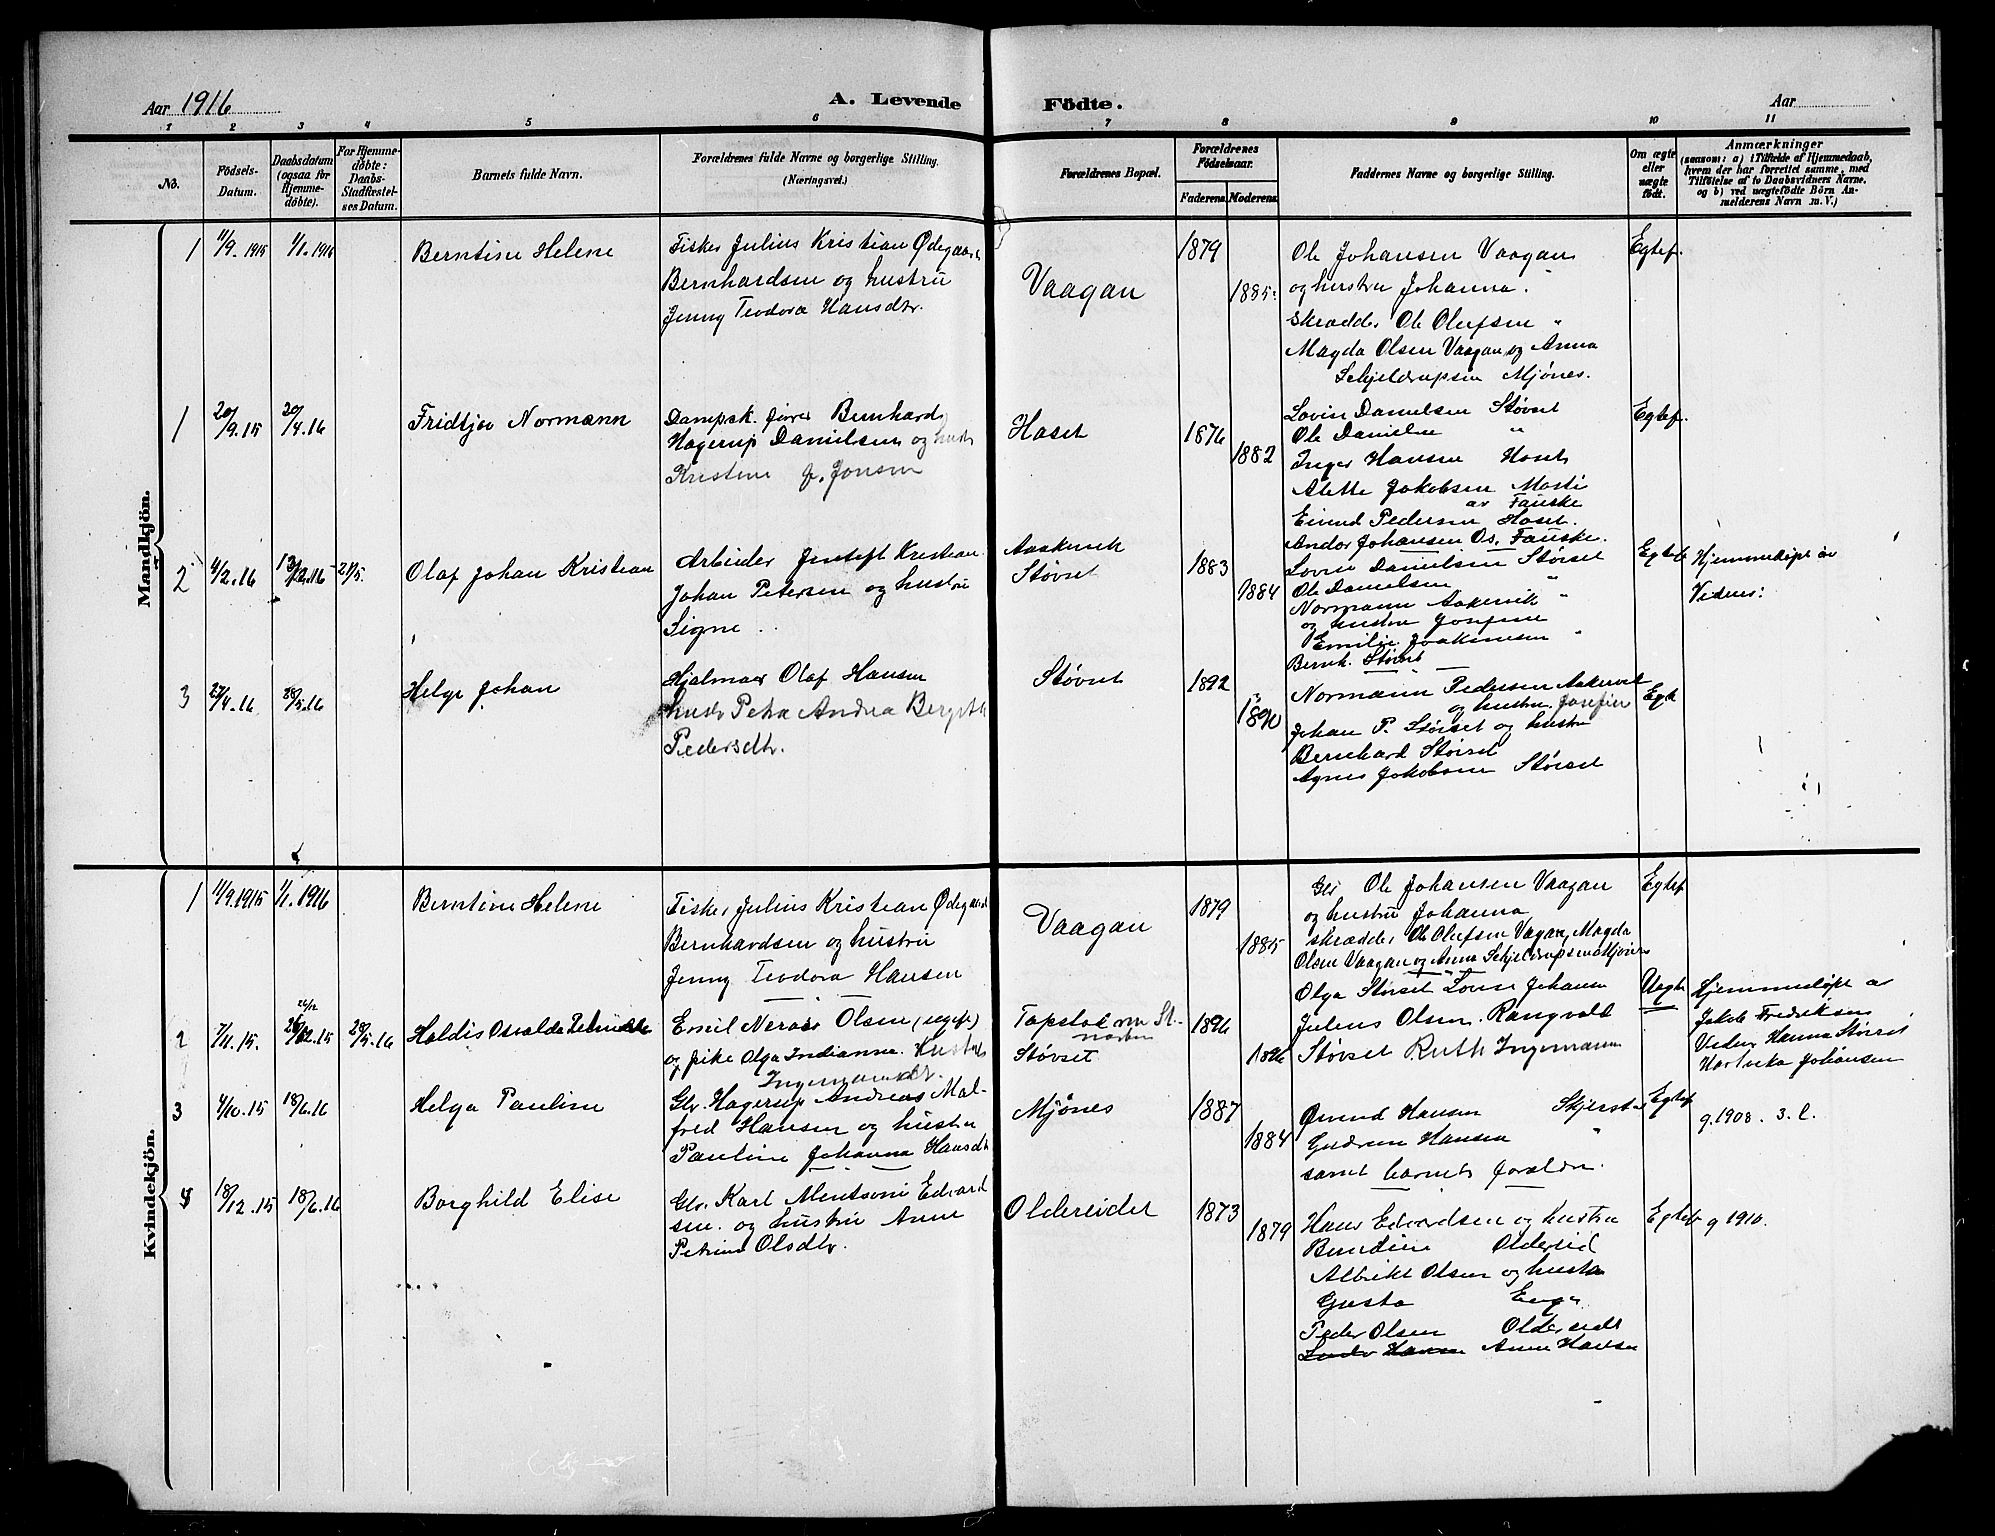 Aar 1916
A. Levende Födte.
Aar
1 2 3 4 5 6 7 8 9 10 11
No.
Födsels-Datum.
Daabsdatum (ogsaa for Hjemmedöbte).
For Hjemmedöbte: Daabs-Stadfæstelses Datum.
Barnets fulde Navn.
Forældrenes fulde Navne og borgerlige Stilling.
(Næringsvei.)
Forældrenes Bopæl.
Forældrenes Födselsaar.
Faderens. Moderens.
Faddernes Navne og borgerlige Stilling.
Om ægte eller uægte födt.
Anmærkninger
(saasom: a) i Tilfælde af Hjemmedaab,
hvem der har forrettet samme, med
Tilföielse af to Daabsvidners Navne,
og b) ved uægtefödte Börn An-
melderens Navn m. V.)
Mandkjön.
1 11/9.1915 1/1.1916 Berntine Helene
Fisker Julius Kristian Ødegaard
Bernhardsen og hustru
Jenny Teodora Hansdtr.
Vaagan
1879
1885
Ole Johansen Vaagan
og hustru Johanna "
Skrædder Ole Olufsen "
Magda Olsen Vaagan og Anna
Schjeldrupsen Mjönes.
Egtef.
1 20/9.15 20/4.16 Fridtjov Normann
Dampsk. fører Bernhard
Hagerup Danielsen og hustr
Kristine J. Jonsen
Hoset
1876
1882
Lovise Danielsen Støvset
Ole Danielsen "
Inger Hansen Hoset
Alette Jakobsen Mosti
av Fauske
Eivind Pedersen Hoset.
Andor Johansen Os, Fauske.
Egtef.
2 4/2.16 13/2.16 21/5. Olaf Johan Kristian
Arbeider Kristian
Johan Petersen og hustru
Signe
Aakervik
Støvset
1883
1884
Lovise Danielsen Støvset
Ole Danielsen "
Normann Aakervik "
og hustru Josefine
Emilie Joakimsen "
Bernh. Støvset
Egtef Hjemmedøpt av
3 27/4.16 28/5.16 Helge Johan
Hjalmar Olaf Hansen
hustr Petra Andrea Bergith
Pedersdtr.
Støvset
1892
1890
Normann Pedersen Aakervik
og hustru Josefine
Johan P. Støvset og hustru
Bernhard Støvset
Agnes Jakobsen Støvset
Egte
Kvindekjön.
1 11/9.1915 1/1.1916 Berntine Helene
Fisker Julius Kristian Ødegaard
Bernhardsen og hustru
Jenny Teodora Hansen
Vaagan
1879
1885
Gbr Ole Johansen Vaagan
og hustru Johanna
skrædder Ole Olufsen Vagan, Magda
Olsen Vaagan og Anna Schjeldrupsen Mjönes
Egtef
2 7/11.15. 26/12 26/12.15 28/5.16 Haldis Osvalda
Emil Olsen (ugift)
og pike Olga Indianna
Ingemansdtr.
Støvset
1896
1896
Olga Støvset Lovise Johansen
Julius Olsen. Rangvald
Støvset Ruth Ingemann
Uegte
Hjemmedøpt av
Jakob Fredriksen
Vidner Hanna Støvset
Hartvika Johansen
3 4/10.15 18/6.16 Helga Pauline
Gbr. Hagerup Andreas Mal-
fred Hansen og hustru
Pauline Johanna Hansdtr
Mjönes
1887
1884
Øivind Hansen Skjerstad
Gudrun Hansen "
samt barnets foreldre.
Egtef g. 1908. 3. l.
4 18/12.15 18/6.16 Borghild Elise
Gbr. Karl Edvard
sen. og hustru Anne
Petrine Olsdtr.
Oldereidet
1873
1879
Hans Edvardsen og hustru
Berndine Oldereid
Albrikt Olsen og hustru
Gusta Enge
Peder Olsen Oldereidet
Hansen Anna Hansen
Egtef g 1910.